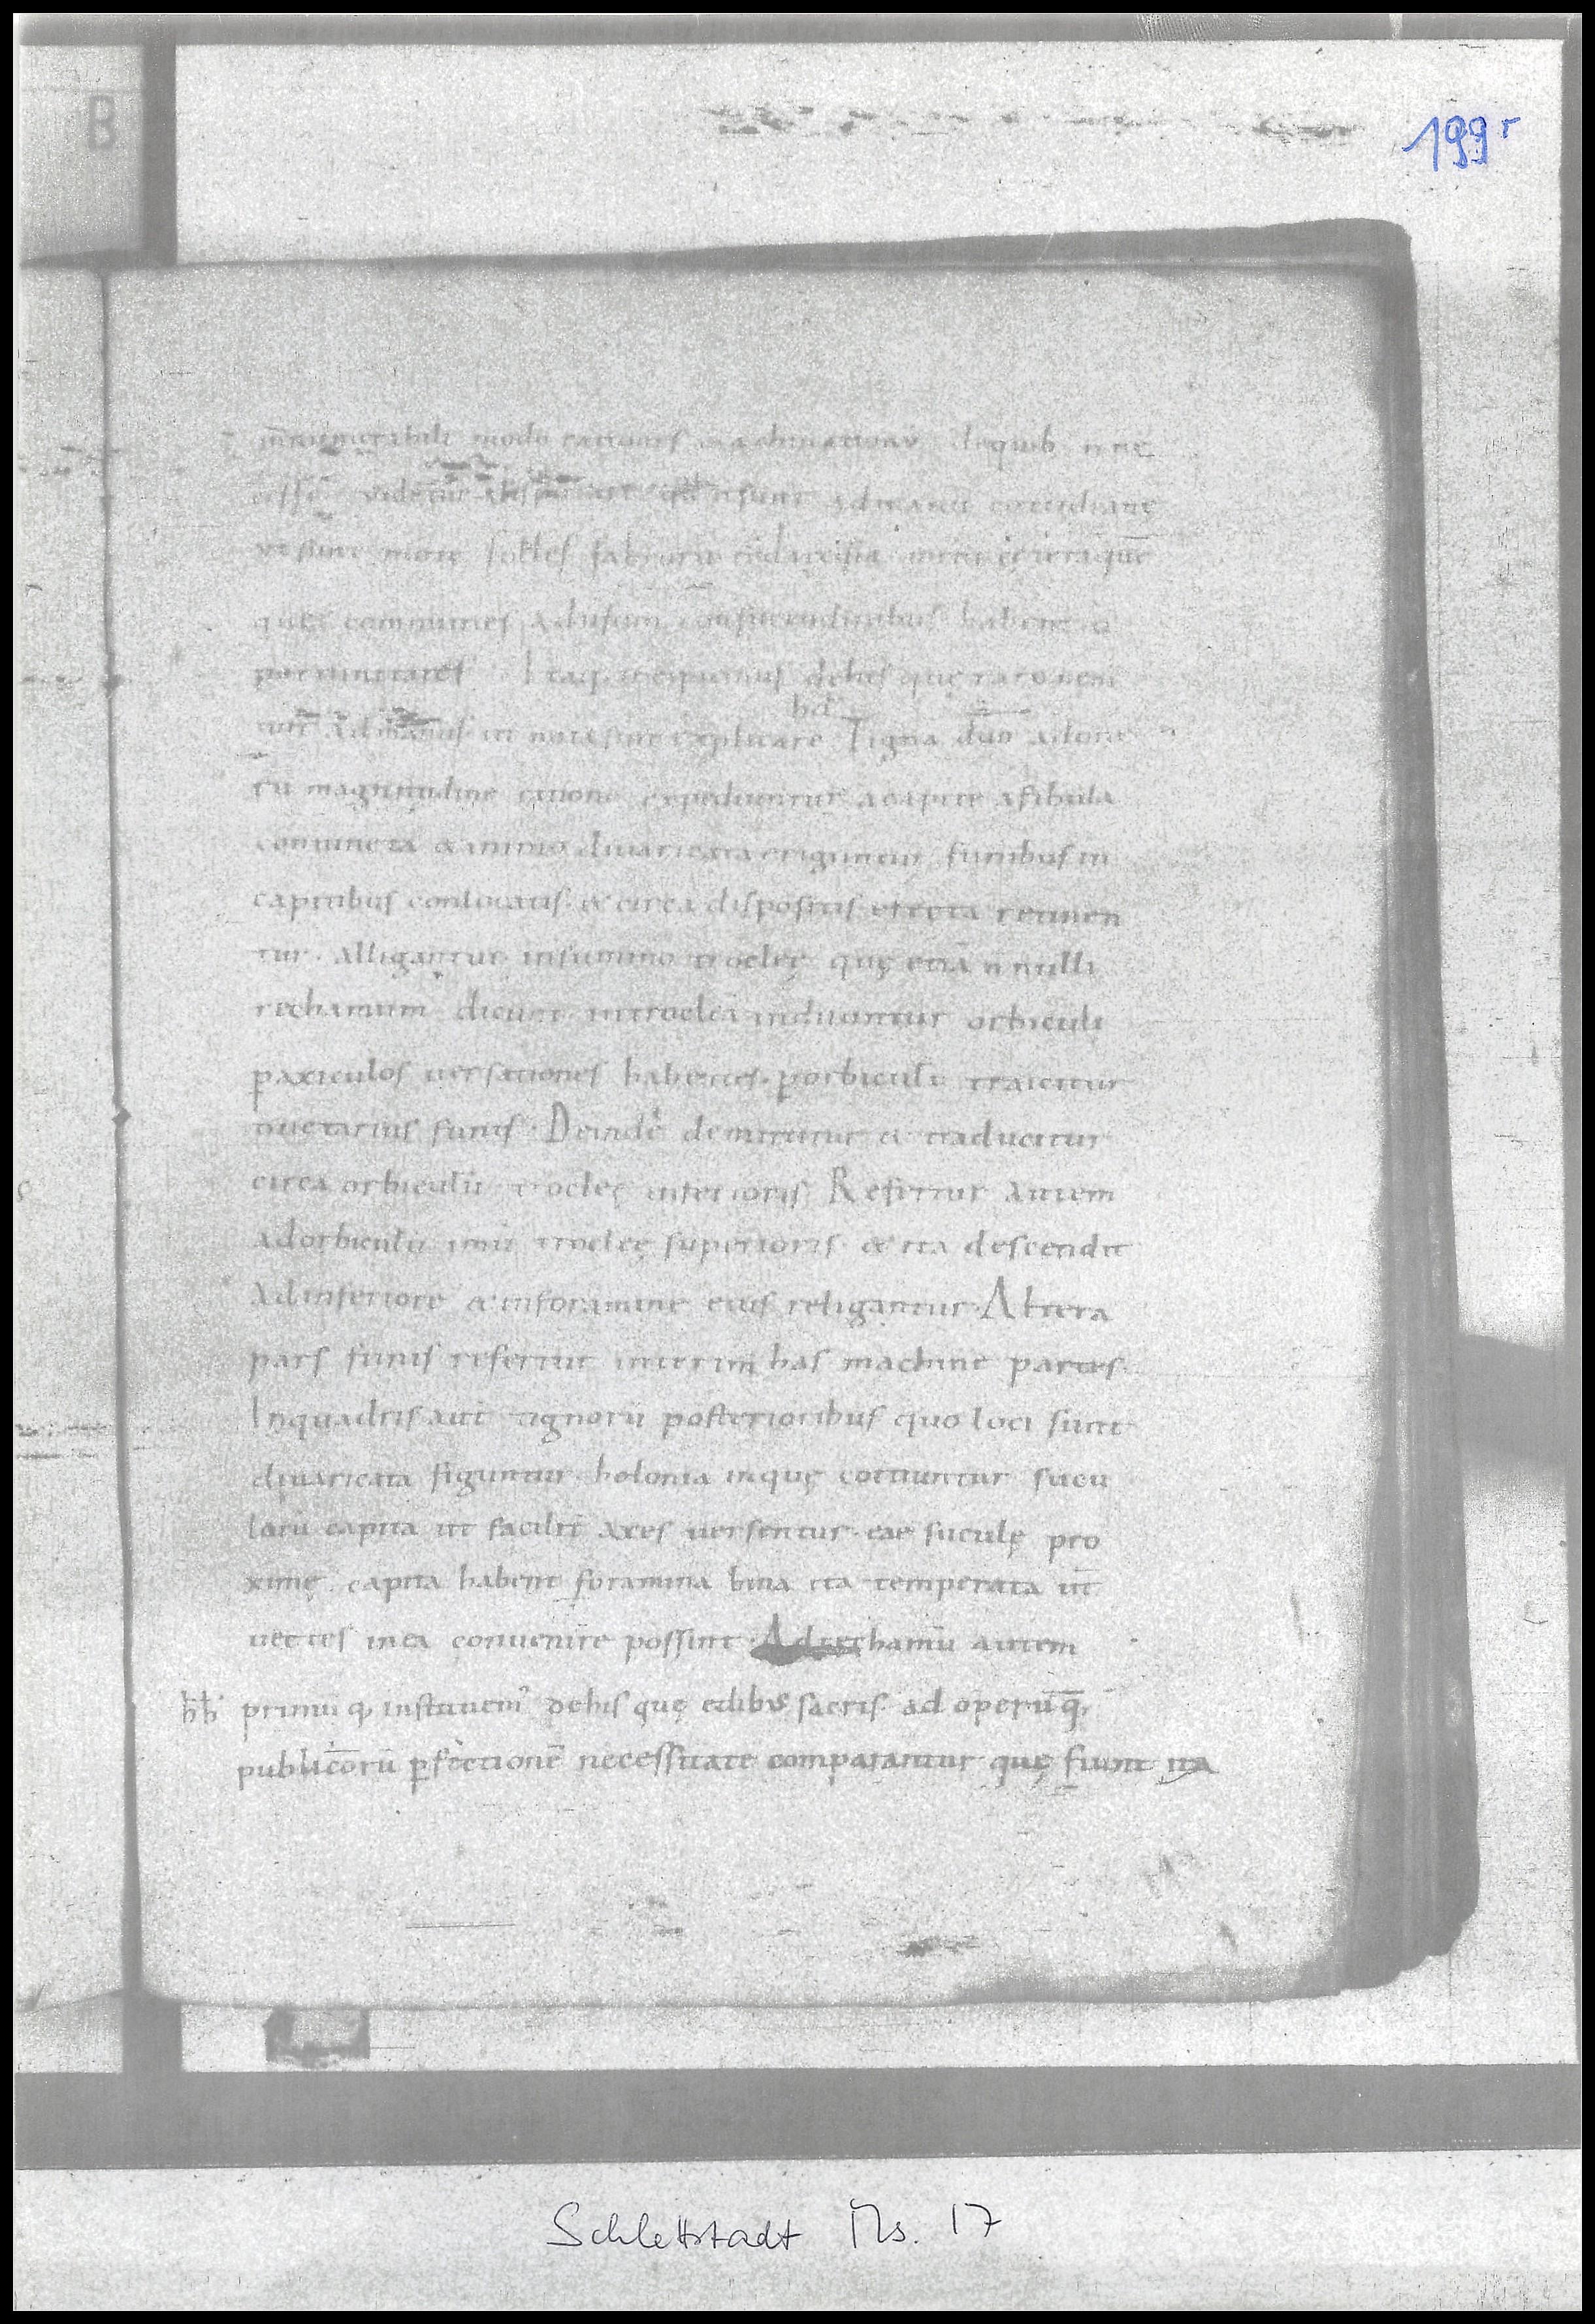 B
199r
innumerabili modo rationes machinationū. de quib; n̄ ne
cesse videtur disputare quā n̄ sunt ad manū cotidianę
ut sunt molę folles fabrorū redę cisia torni ceteraque
quę communes ad usum consuetudinibus habent o
portunitates. Itaq; incipiemus de his quę raro veni
unt ad manus ut nota sint explicare Tigna duo ad one
hd
rū magnitudine ratione expediuntur a capite a fibula
coniuncta & in imo divaricata eriguntur funibus in
capitibus conlocatis & circa dispositis erecta retinen
tur. alligantur in summo trocleę quę etiā n̄ nulli
rechamum dicunt. in trocleā induontur orbiculi
p axiculos versationes habentes. p orbiculū traicitur
ductarius funis. Deinde demittitur & traducitur
circa orbiculū trocleę inferioris Refertur autem
ad orbiculū imū trocleę superioris & ita descendit
ad inferiorē & in foramine eius religantur. Altera
pars funis refertur inter im̄ has machine partes.
In quadris aut tignorū posterioribus quo loci sunt
divaricata figuntur. helonia in quę coitiuntur sucu
larū capita ut facilit axes versentur. eae suculę pro
ximę. capita habent foramina bina ita temperata ut
vectes in ea convenire possint. Ad rechamū autem
hh primū q; instituem' de his quę edibus sacris. ad operūq;
publicorū pfectionē necessitate comparantur quę fiunt ita
Schlettstadt Ms. 17